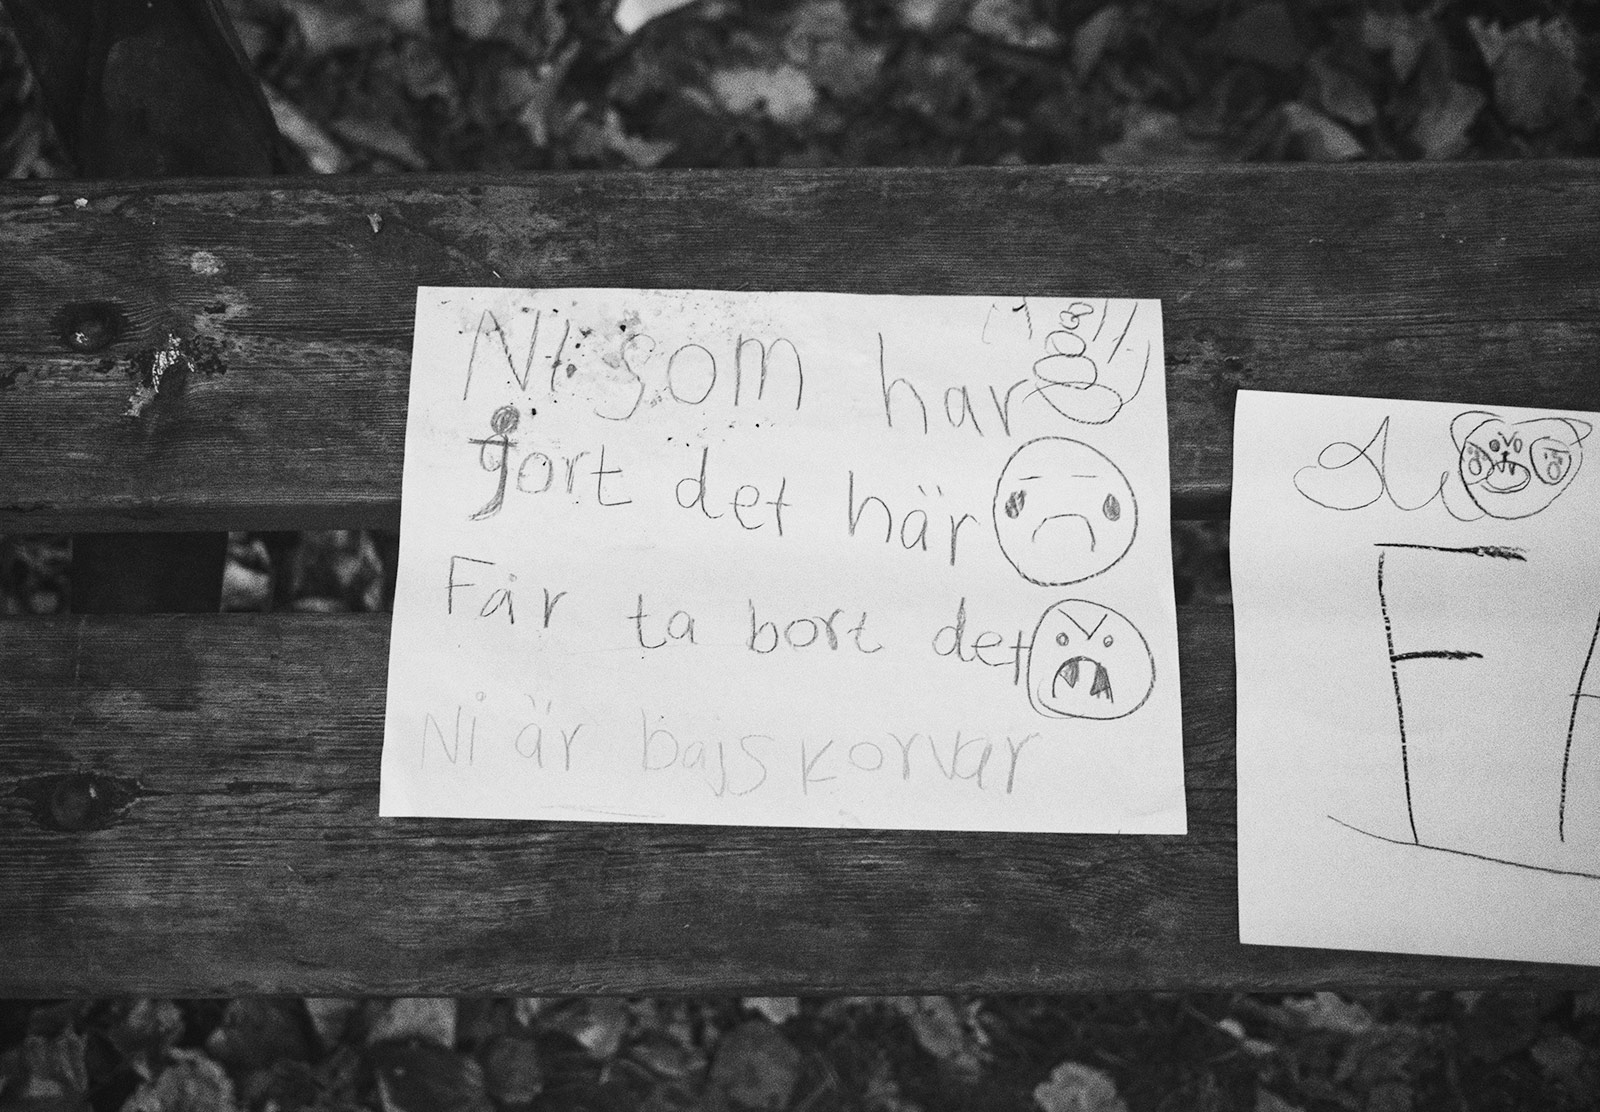 Ni som har
gort det här
Får ta bort det
Ni är bajskorvar
F